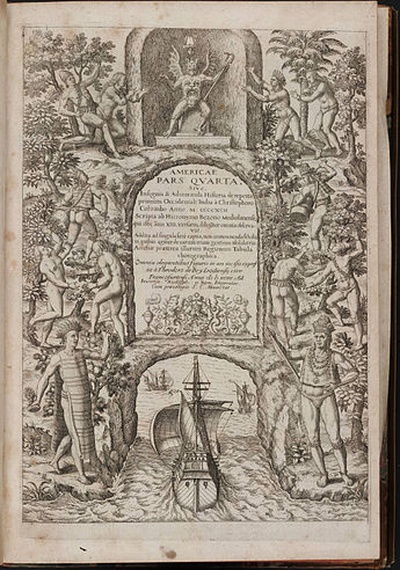 AMERICAE
PARS QVARTA.
SIVE,
Insignis & Admiranda Historia de reperta
primùm Occidentali India à Christophoro
Columbo Anno M. CCCCXCII
Scripta ab Hieronymo Bezono Mediolanense
qui istic annis XIIII. versatus, diligenter omnia observavit
Addita ad singula ferè capita, non contemnenda scholia
in quibus agitur de earum etiam gentium idololatria
Accessit praeterea illarum Regionum Tabula
chorographica.
Omnia elegantibus figuris in aes incisis expressa
à Theodoro de Bry Leodiense, cive
Francofurtensi Anno
Cum privilegio S. C. Maiestatis